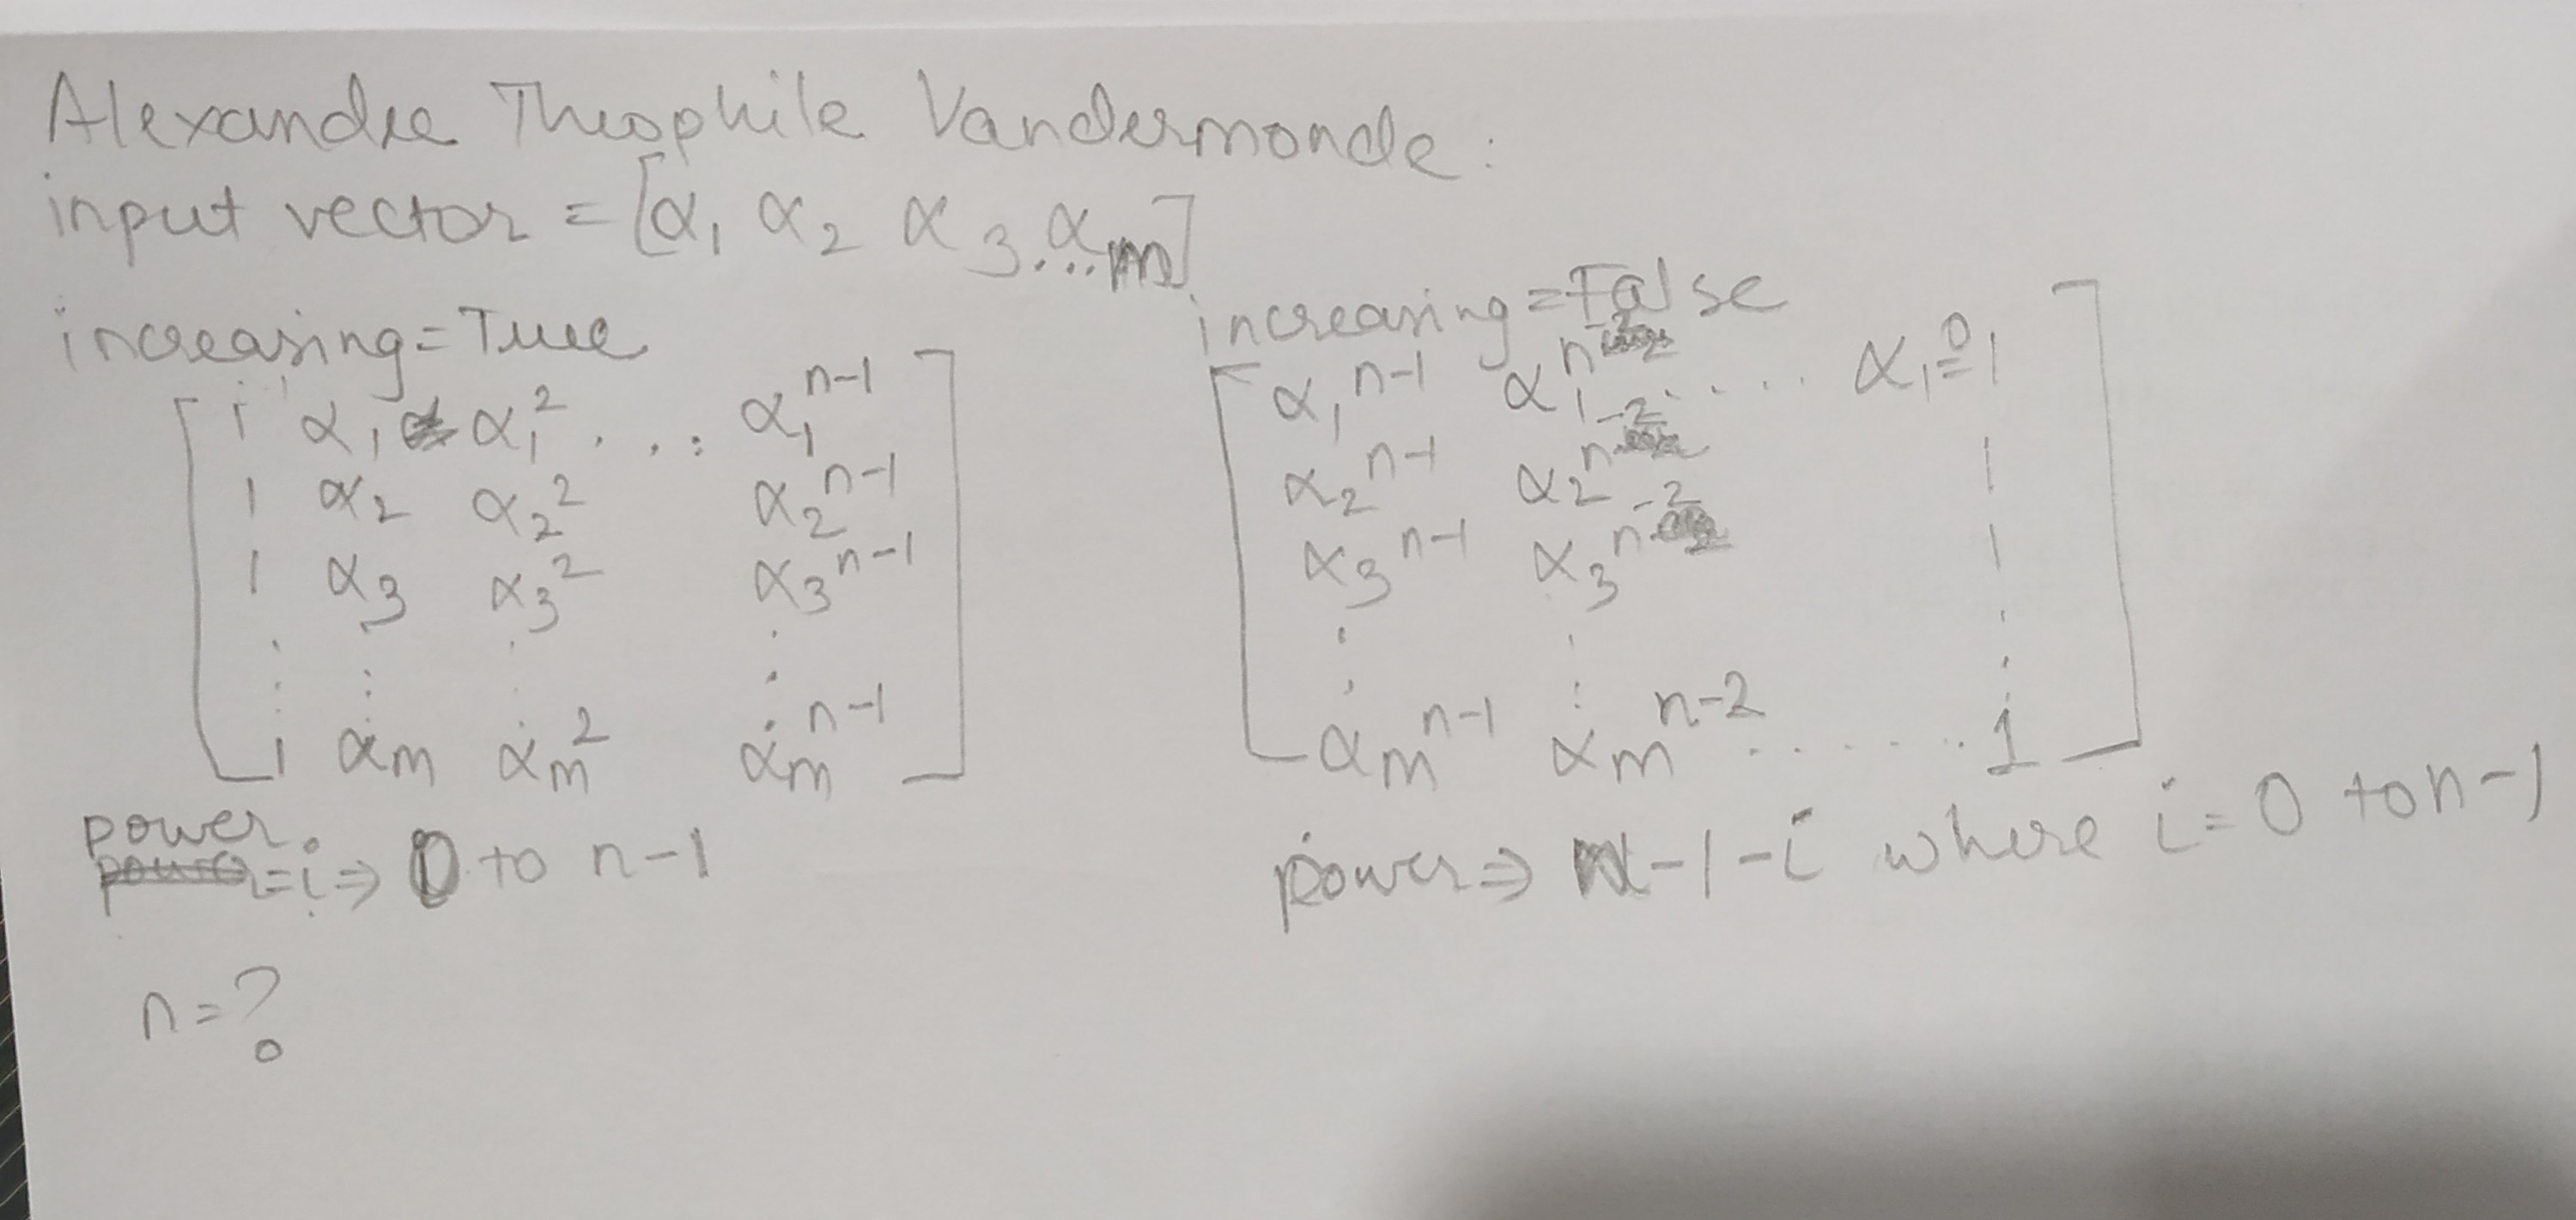 Alexandre Theophile Vandermonde:
input vector = [α₁ α₂ α₃...αₘ]
increasing=True
1 α₁ α₁² . . . : α₁ⁿ⁻¹
1 α₂ α₂² α₂ⁿ⁻¹
1 α₃ α₃² α₃ⁿ⁻¹
1 αₘ αₘ² αₘⁿ⁻¹
power
=i⇒ 0 to n-1
n=?
increasing=False
α₁ⁿ⁻¹ α₁ⁿ⁻² ..... α₁⁰=1
α₂ⁿ⁻¹ α₂ⁿ⁻² 1
α₃ⁿ⁻¹ α₃ⁿ⁻² 1
αₘⁿ⁻¹ αₘⁿ⁻² ....... 1
power⇒ n-1-i where i=0 to n-1